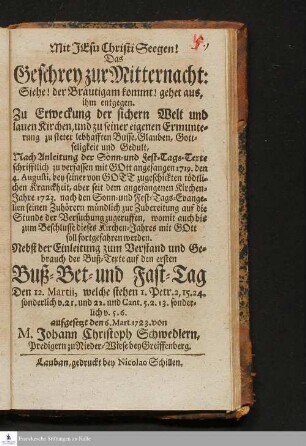 Mit JEsu Christi Seegen!
Das
Geschrey zur Mitternacht:
Siehe! der Bräutigam kommt! gehet aus,
ihm entgegen.
Zu Erweckung der sichern Welt und
lauen Kirchen, und zu seiner eigenen Ermunte-
rung zu steter lebhafften Busse, Glauben, Gott-
seligkeit und Gedult,
Nach Anleitung der Sonn- und Fest-Tags-Texte
schrifftlich zu verfassen mit GOtt angefangen 1719. den
4. Augusti, bey seiner von GOTT zugeschickten tödtli-
chen Kranckheit, aber seit dem angefangenen Kirchen-
Jahre 1723. nach den Sonn- und Fest-Tags-Evange-
lien seinen Zuhörern mündlich zur Zubereitung auf die
Stunde der Versuchung zugeruffen, womit auch biß
zum Beschlusse dieses Kirchen-Jahres mit GOtt
soll fortgefahren werden.
Nebst der Einleitung zum Verstand und Ge-
brauch der Buß-Texte auf den ersten
Buß-Bet- und Fast-Tag
Den 12. Martii, welche stehen 1. Petr. 2, 15. 24.
sonderlich v. 21. und 22. und Cant. 5. 2. 13. sonder-
lich v. 5. 6.
aufgesetzt den 6. Mart. 1723. von
M. Johann Christoph Schwedlern,
Predigern zu Nieder-Wiese bey Greiffenberg.
Lauban, gedruckt bey Nicolao Schillen.
Franckesche Stiftungen zu Halle